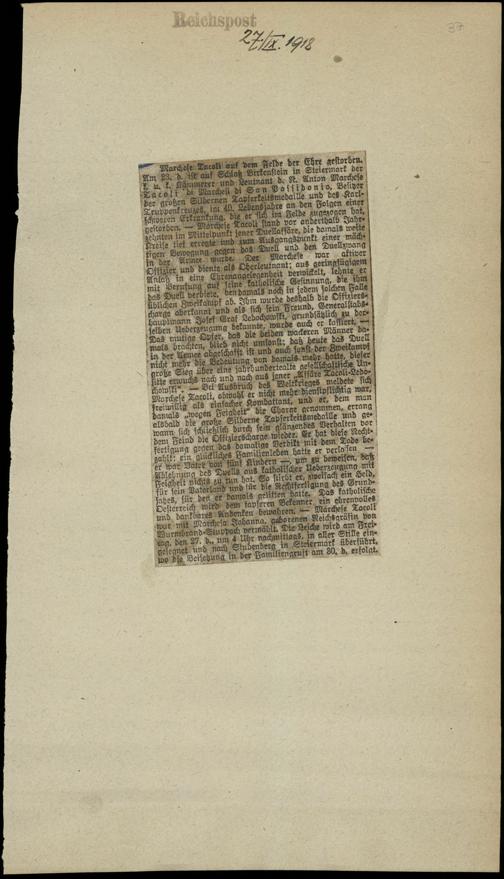 Reichspost
27/IX. 1918
37
Marchese Tacoli auf dem Felde der Ehre gestorben.
Am 23. d. ist auf Schloß Birkenstein in Steiermark der
k. u. k. Kämmerer und Leutnant d. R. Anton Marchese
Tacoli, di Marchesi di San Possidonio, Besitzer
der großen Silbernen Tapferkeitsmedaille und des Karl-
Truppenkreuzes, im 40. Lebensjahre an den Folgen einer
schweren Erkrankung, die er sich im Felde zugezogen hat,
gestorben. — Marchese Tacoli stand vor anderthalb Jahr-
zehnten im Mittelpunkt jener Duellaffäre, die damals weite
Kreise tief erregte und zum Ausgangspunkt einer mäch-
tigen Bewegung gegen das Duell und den Duellzwang
in der Armee wurde. Der Marchese war aktiver
Offizier und diente als Oberleutnant; aus geringfügigem
Anlaß in eine Ehrenangelegenheit verwickelt, lehnte er
mit Berufung auf seine katholische Gesinnung, die ihm
das Duell verbiete, den damals noch in jedem solchen Falle
üblichen Zweikampf ab. Ihm wurde deshalb die Offiziers-
charge aberkannt und als sich sein Freund, Generalstabs-
hauptmann Josef Graf Ledochowski, grundsätzlich zu der-
selben Ueberzeugung bekannte, wurde auch er kassiert. —
Das mutige Opfer, das die beiden wackeren Männer da-
mals brachten, blieb nicht umsonst; daß heute das Duell
in der Armee abgeschafft ist und auch sonst der Zweikampf
nicht mehr die Bedeutung von damals mehr hatte, dieser
große Sieg über eine jahrhundertealte gesellschaftliche Un-
sitte erwuchs nach und nach aus jener „Affäre Tacoli-Ledo-
chowski“. — Bei Ausbruch des Weltkrieges meldete sich
Marchese Tacoli, obwohl er nicht mehr dienstpflichtig war,
freiwillig als einfacher Kombattant, und er, dem man
damals „wegen Feigheit“ die Charge genommen, errang
alsbald die große Silberne Tapferkeitsmedaille und ge-
wann sich schließlich durch sein glänzendes Verhalten vor
dem Feind die Offizierscharge wieder. Er hat diese Recht-
fertigung gegen das damalige Verdikt mit dem Tode be-
zahlt: ein glückliches Familienleben hatte er verlassen —
er war Vater von fünf Kindern —, um zu beweisen, daß
Ablehnung des Duells aus katholischer Ueberzeugung mit
Feigheit nichts zu tun hat. So stirbt er, zweifach ein Held,
für sein Vaterland und für die Rechtfertigung des Grund-
satzes, für den er damals gelitten hatte. Das katholische
Oesterreich wird dem tapferen Bekenner ein ehrenvolles
und dankbares Andenken bewahren. — Marchese Tacoli
war mit Marchesa Johanna, geborenen Reichsgräfin von
Wurmbrand-Stuppach vermählt. Die Leiche wird am Frei-
tag, den 27. d., um 4 Uhr nachmittags, in aller Stille ein-
gesegnet und nach Stubenberg in Steiermark überführt,
wo die Beisetzung in der Familiengruft am 30. d. erfolgt.